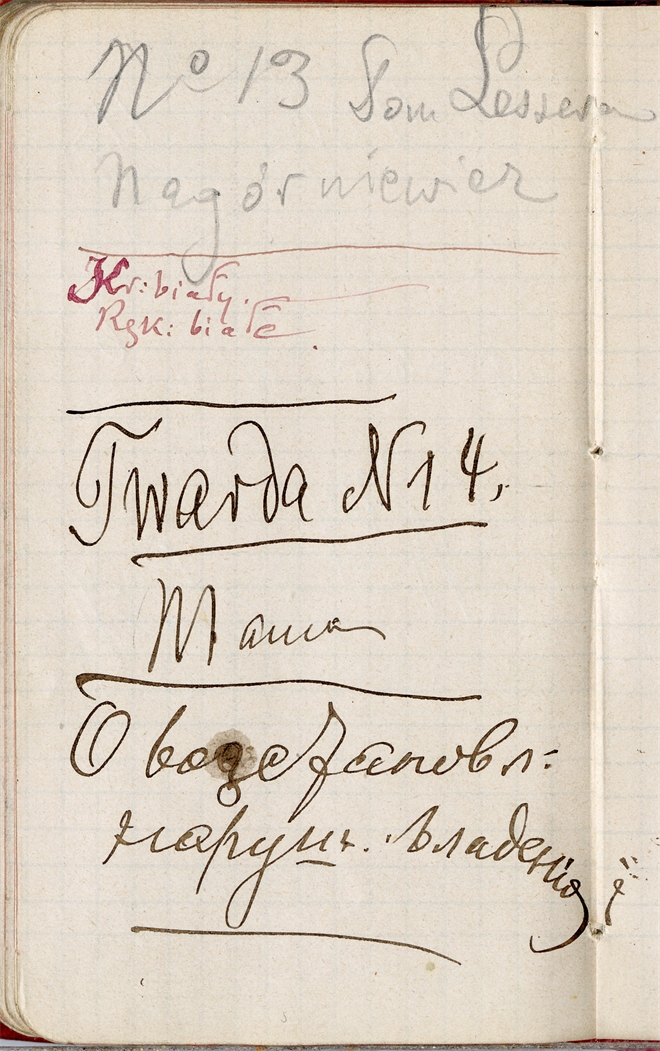 No 13 Dom Lessera
Nagórniewicz
Kr: biały.
Ręk: białe
Twarda N 14.
Mama
О возстановл:
наруш. владения